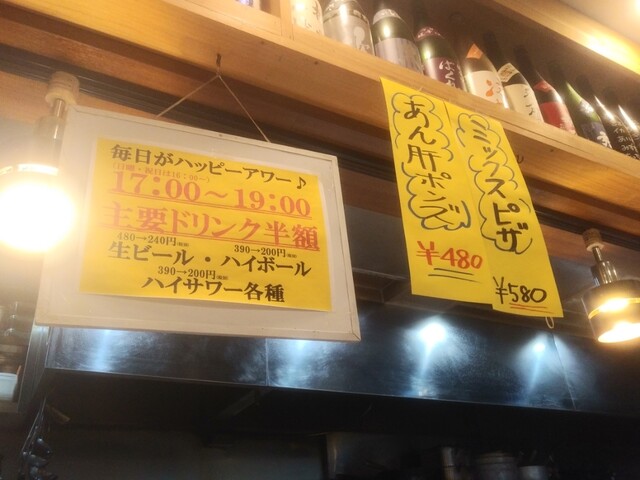 毎日がハッピーアワー♪
17:00～19:00
主要ドリンク半額
480→240円 390→200円
生ビール・ハイボール
390→200円
ハイサワー各種
あん肝ポンズ
¥480
ミックスピザ
¥580